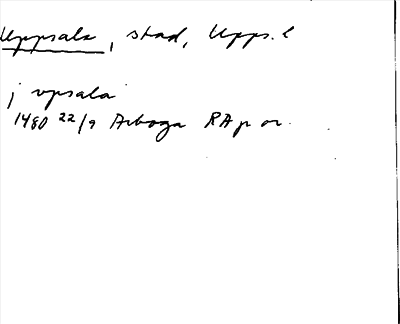 Uppsala, stad, Upps. l
j vpsala
1480 22/9 Arboga RAp or.